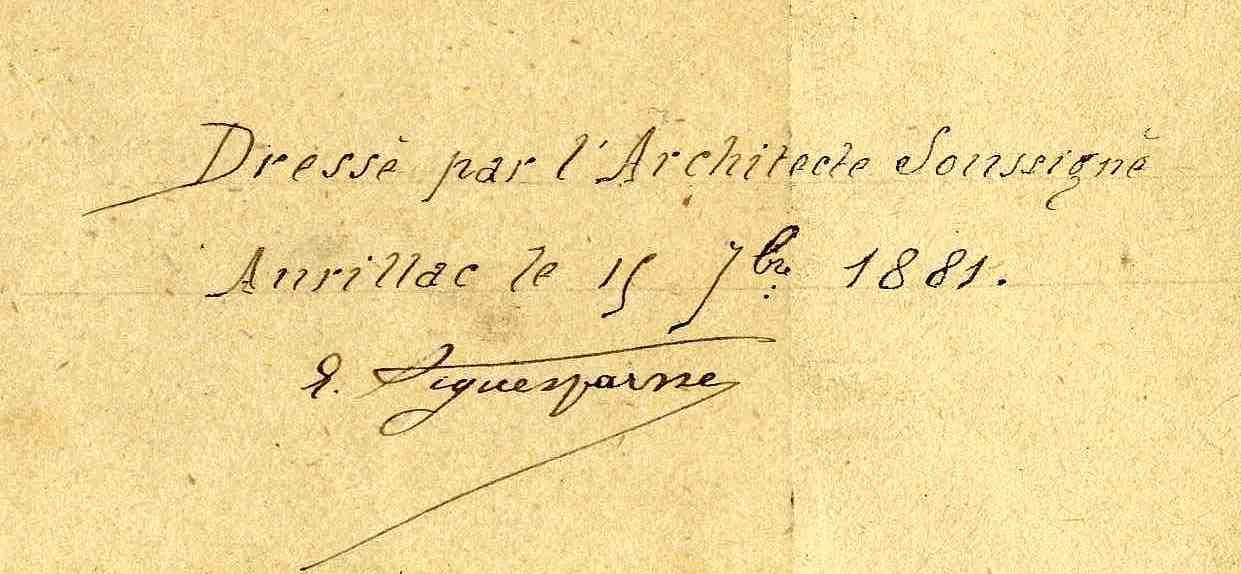 Dressé par l'Architecte Soussigné
Aurillac le 15 7bre 1881.
E.